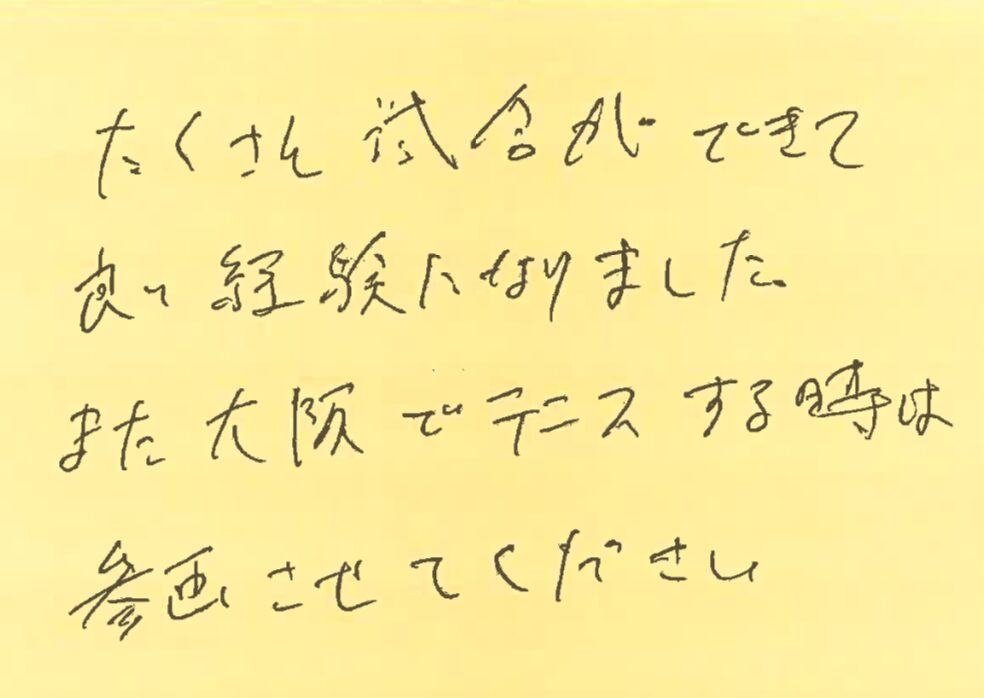 たくさん試合ができて
良い経験になりました。
また大阪でテニスする時は
参画させてください